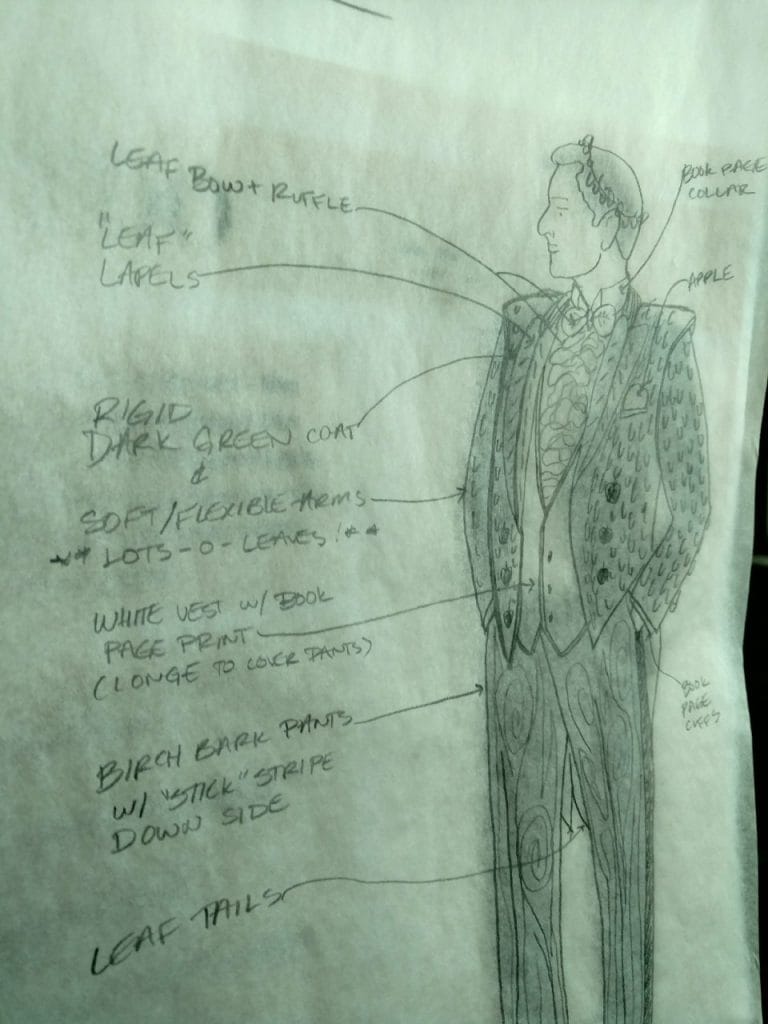 LEAF BOW + RUFFLE
"LEAF"
LAPELS
RIGID
DARK GREEN COAT
&
SOFT/FLEXIBLE ARMS
** LOTS-O-LEAVES! **
WHITE VEST W/ BOOK
PAGE PRINT
(LONGE TO COVER PANTS)
BIRCH BARK PANTS
W/ "STICK" STRIPE
DOWN SIDE
LEAF TAILS
BOOK PAGE
COLLAR
APPLE
BOOK
PAGE
CUFFS